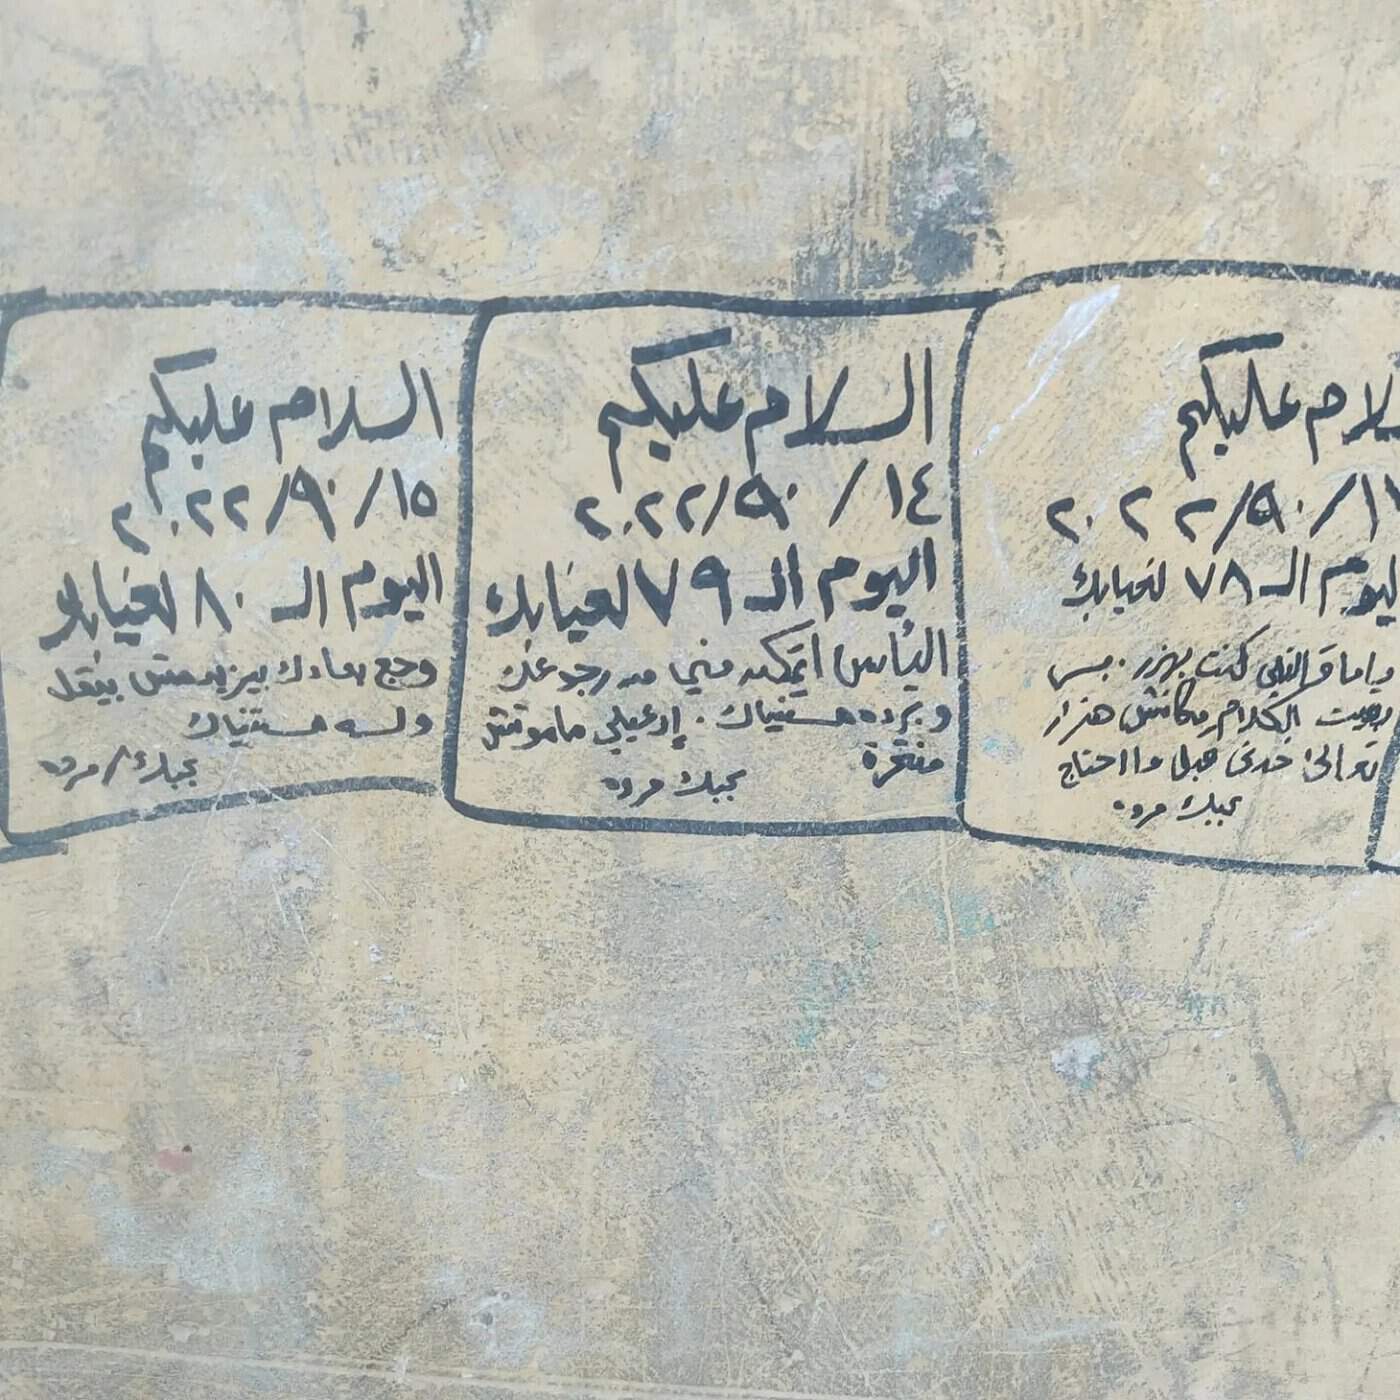 السلام عليكم
١٣/٩٠/٢٠٢٢
اليوم الـ ٧٨ لغيابك
ياما قالتلي كنت بهزر. بس
الكلام مكانش هزار
تعالى خدى هبلا واحتاج
بحبك مروه
السلام عليكم
١٤/٩٠/٢٠٢٢
اليوم الـ ٧٩ لغيابك
اليأس اتمكن مني من رجوعك
وبرده مستنياك. إدعيلي ماموتش
منتحرة
بحبك مروه
السلام عليكم
١٥/٩٠/٢٠٢٢
اليوم الـ ٨٠ لغيابك
وجع بعادك بيزيد مش بيقل
ولسه مستنياك
بحبك/مروه